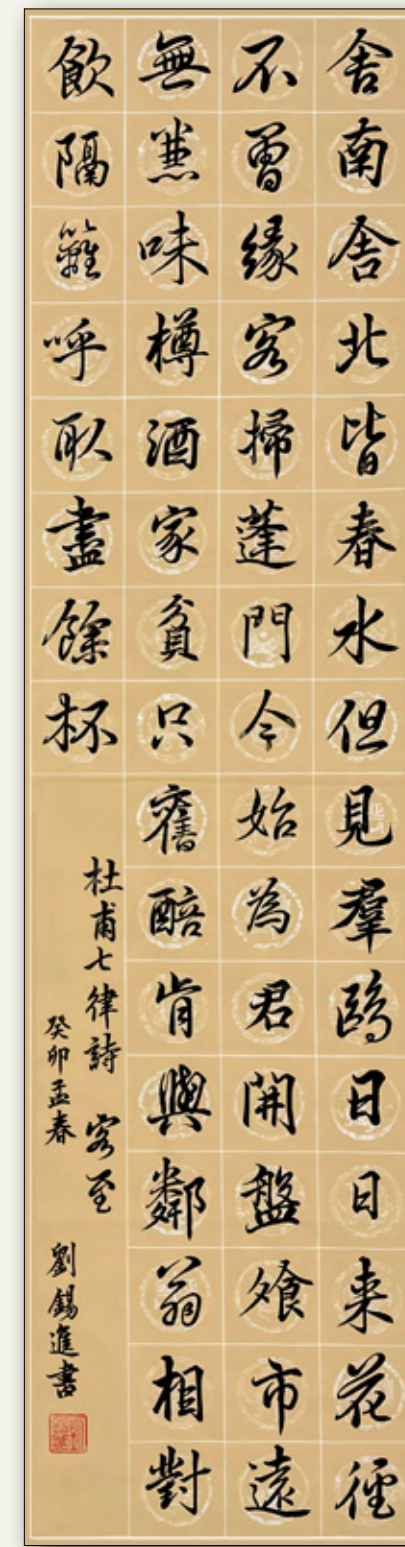 舍南舍北皆春水但見羣鷗日日来花徑
不曾緣客掃蓬門今始為君開盤飧市遠
無兼味樽酒家貧只舊醅肯與鄰翁相對
飲隔籬呼取盡餘杯
杜甫七律詩 客至
癸卯孟春 劉錫進書